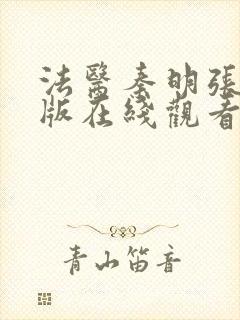 法醫秦明張
版在綫觀看
青山笛音